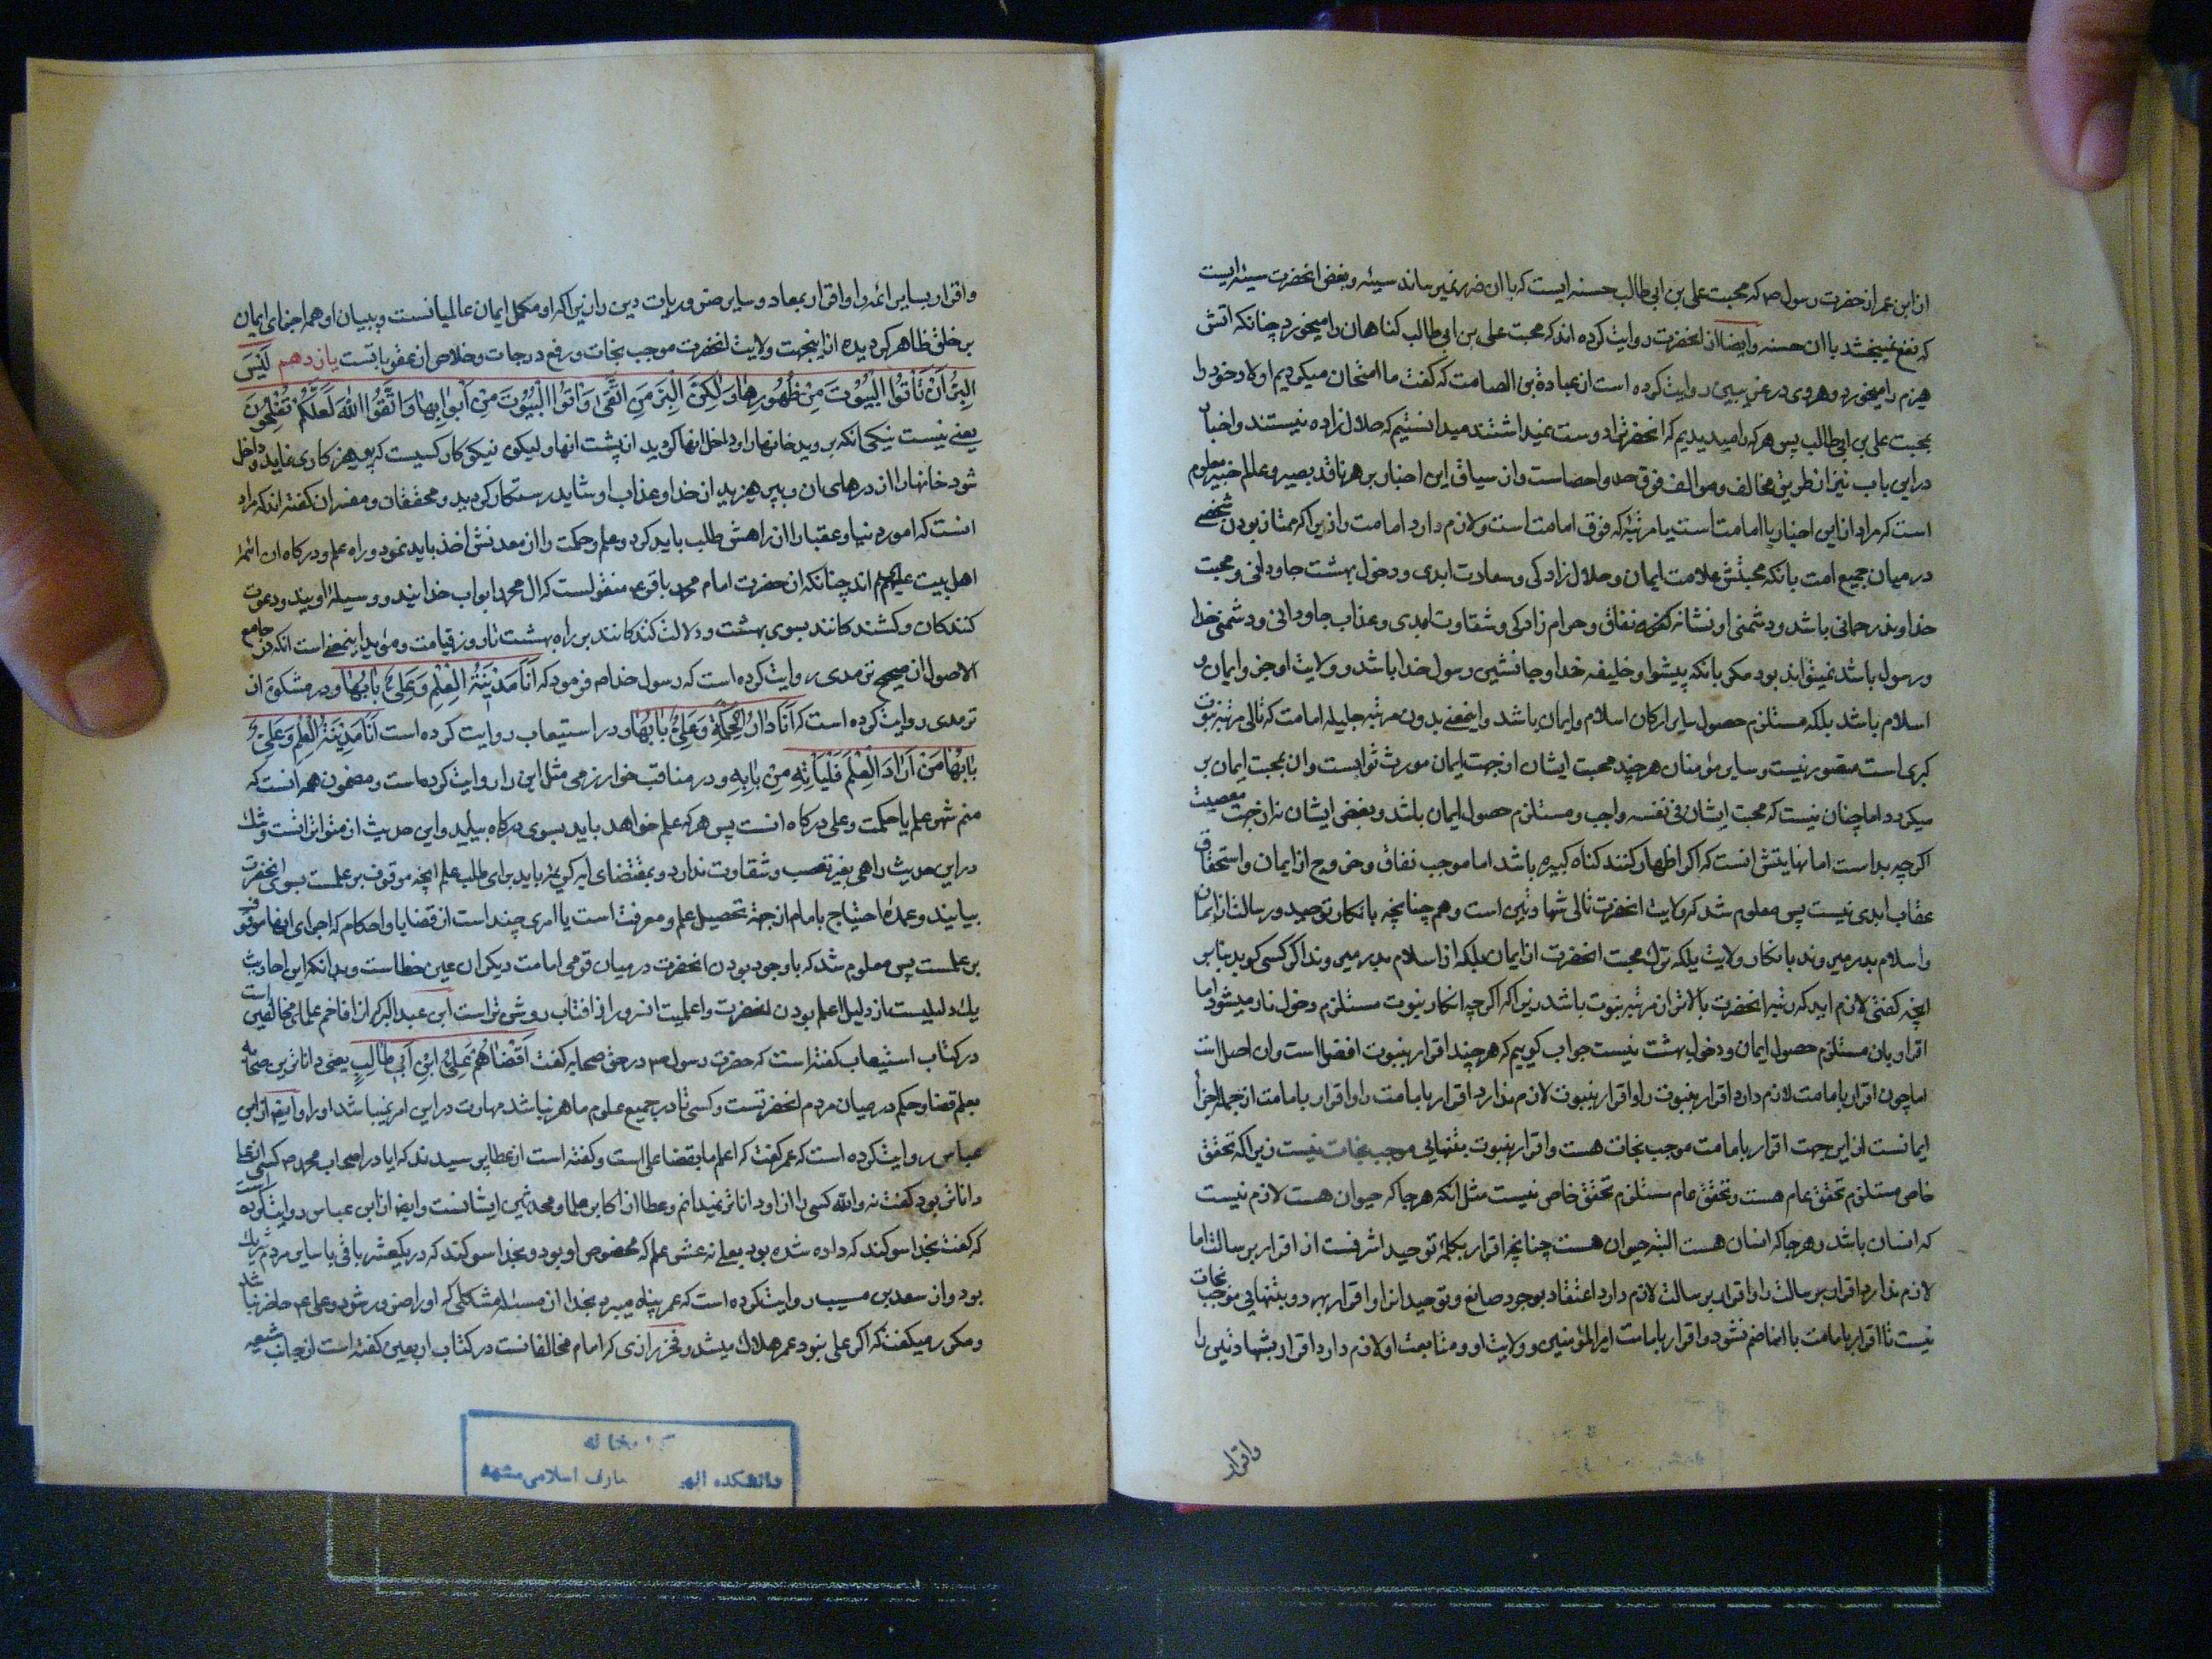 از ابن عمر از حضرت رسول ص که محبت علی بن ابی طالب حسنه ایست که با ان ضرر نمیرساند سیئه و بغض انحضرت سیئه ایست
که نفع نمیبخشد با ان حسنه وایضا از انحضرت روایت کرده اند که محبت علی بن ابی طالب کناهان را میخورد چنانکه اتش
هیزم را میخورد و هروی در غریبین روایت کرده است از عبادة بن الصامت که کفت ما امتحان میکردیم اولاد خود را
بمحبت علی بن ابی طالب پس هر که را میدیدیم که انحضرترا دوست نمیداشتند میدانستیم که حلال زاده نیستند و اخبار
در این باب نیز از طریق مخالف و موالف فوق حد و احصاست و از سیاق این اخبار بر هر ناقد بصیر و عالم خبیر معلوم
است که مراد از این اخبار یا امامت است یا مرتبه که فوق امامت است و لازم دارد امامت را زیرا که ممتاز بودن شخصی
در میان جمیع امت بانکه محبتش علامت ایمان و حلال زادکی و سعادت ابدی و دخول بهشت جاودانی و محبت
خداوند رحمانی باشد و دشمنی او نشانه کفر و نفاق و حرام زادکی و شقاوت ابدی و عذاب جاودانی و دشمنی خدا
و رسول باشد نمیتواند بود مکر بانکه پیشوا و خلیفه خدا و جانشین رسول خدا باشد و ولایت او جزو ایمان و
اسلام باشد بلکه مستلزم حصول سایر ارکان اسلام و ایمان باشد و اینمعنی بدون مرتبه جلیله امامت که تالی مرتبه نبوت
کبری است متصور نیست و سایر مؤمنان هر چند محبت ایشان از جهت ایمان مورث ثوابست و ان بمحبت ایمان بر
میکردد اما چنان نیست که محبت ایشان فی نفسه واجب و مستلزم حصول ایمان باشد و بغض ایشان نه از جهت معصیت
اکرچه بد است اما نهایتش انست که اکر اظهار کنند کناه کبیره باشد اما موجب نفاق و خروج از ایمان و استحقاق
عقاب ابدی نیست پس معلوم شد که ولایت انحضرت تالی شهادتین است و هم چنانچه بانکار توحید و رسالت از ایمان
و اسلام بدر میروند بانکار ولایت بلکه ترک محبت انحضرت از ایمان بلکه از اسلام بدر میروند اکر کسی کوید بنابر
انچه کفتی لازم اید که رتبه انحضرت بالاتر از مرتبه نبوت باشد زیرا که اکرچه انکار نبوت مستلزم دخول نار میشود اما
اقرار بان مستلزم حصول ایمان و دخول بهشت نیست جواب کوییم که هر چند اقرار بنبوت افضل است و ان اصل است
اما چون اقرار بامامت لازم دارد اقرار بنبوت را و اقرار بنبوت لازم ندارد اقرار بامامت را و اقرار بامامت از جمله اجزا
ایمانست از این جهت اقرار بامامت موجب نجات هست و اقرار بنبوت بتنهایی موجب نجات نیست زیرا که تحقق
خاص مستلزم تحقق عام هست و تحقق عام مستلزم تحقق خاص نیست مثل انکه هر جا که حیوان هست لازم نیست
که انسان باشد و هر جا که انسان هست البته حیوان هست چنانچه اقرار بکلمه توحید اشرفست از اقرار برسالت اما
لازم ندارد اقرار برسالت را و اقرار برسالت لازم دارد اعتقاد بوجود صانع و توحید انرا و اقرار بهر دو بتنهایی موجب نجات
نیست تا اقرار بامامت با انها ضم نشود و اقرار بامامت امیرالمؤمنین و ولایت او و متابعت او لازم دارد اقرار بشهادتین را
واقرار
واقرار بسایر ائمه را و اقرار بمعاد و سایر ضروریات دین را زیرا که او مکمل ایمان عالمیانست و ببیان او همه اجزای ایمان
بر خلق ظاهر کردیده از اینجهت ولایت انحضرت موجب نجات و رفع درجات و خلاص از عقوباتست یازدهم لَیْسَ
الْبِرُّ اَنْ تَأْتُوا الْبُیُوْتَ مِنْ ظُهُوْرِهَا وَلٰکِنَّ الْبِرَّ مَنِ اتَّقٰی وَأْتُوا الْبُیُوْتَ مِنْ اَبْوَابِهَا وَاتَّقُوا اللهَ لَعَلَّکُمْ تُفْلِحُوْنَ
یعنی نیست نیکی انکه بروید خانهارا و داخل انها کردید از پشت انها و لیکن نیکو کار کسیست که پرهیزکاری نماید و داخل
شود خانهارا از درهای ان و بپرهیزید از خدا و عذاب او شاید رستکار کردید و محققان و مفسران کفته اند که مراد
انست که امور دنیا و عقبا را از راهش طلب باید کرد و علم و حکمت را از معدنش اخذ باید نمود و راه علم و درکاه ان ائمه
اهل بیت علیهم اند چنانکه از حضرت امام محمد باقر ع منقولست که ال محمد ابواب خدایند و وسیله اویند و دعوت
کنندکان و کشندکانند بسوی بهشت و دلالت کنندکانند بر راه بهشت تا روز قیامت و مؤید اینمعنی است انکه در جامع
الاصول از صحیح ترمدی روایت کرده است که رسول خدا ص فرمود که اَنَا مَدِیْنَةُ الْعِلْمِ وَعَلِیٌّ بَابُهَا و در مشکوة از
ترمدی روایت کرده است که اَنَا دَارُ الْحِکْمَةِ وَعَلِیٌّ بَابُهَا و در استیعاب روایت کرده است اَنَا مَدِیْنَةُ الْعِلْمِ وَعَلِیٌّ
بَابُهَا مَنْ اَرَادَ الْعِلْمَ فَلْیَأْتِهِ مِنْ بَابِهِ و در مناقب خوارزمی مثل این را روایت کرده است و مضمون همه انست که
منم شهر علم یا حکمت و علی درکاه انست پس هر که علم خواهد باید بسوی درکاه بیاید و این حدیث از متواتراتست و شک
در این حدیث راهی بغیر تعصب و شقاوت ندارد و بمقتضای ایه کریمه باید برای طلب علم انچه موقوف بر علمست بسوی انحضرت
بیایند و عمده احتیاج بامام از جهة تحصیل علم و معرفت است یا امری چند است از قضایا و احکام که اجرای انها موقوف
بر علمست پس معلوم شد که با وجود بودن انحضرت در میان قومی امامت دیکران عین خطاست و بدانکه این احادیث
یک دلیلیست از دلیل اعلم بودن انحضرت و اعلمیت انسرور از افتاب روشن تر است ابن عبد البر که از افاخم علمای مخالفین است
در کتاب استیعاب کفته است که حضرت رسول ص در حق صحابه کفت اَقْضَاهُمْ عَلِیُّ ابْنُ اَبِیْ طَالِبٍ یعنی داناترین صحابه
بعلم قضا و حکم در میان مردم انحضرتست و کسی تا در جمیع علوم ماهر نباشد مهارت در این امر نمیباشد او را و ایضا از ابن
عباس روایت کرده است که عمر کفت که اعلم ما بقضا علی است و کفته است از عطا پرسیدند که ایا در اصحاب محمد ص کسی از علی
داناتر بود کفت نه والله کسی را از او داناتر نمیدانم و عطا از اکابر علما و محدثین ایشانست و ایضا از ابن عباس روایت کرده است
که کفت بخدا سوکند که داده شده بود بعلی نه عشر علم که مخصوص او بود و بخدا سوکند که در یکعشر باقی با سایر مردم شریک
بود و از سعد بن مسیب روایت کرده است که عمر پناه میبرد بخدا از مسئله مشکلی که او را ضرور شود و علی ع حاضر نباشد
و مکرر میکفت که اکر علی نبود عمر هلاک میشد و فخر رازی که امام مخالفانست در کتاب اربعین کفته است از جانب شیعه
دانشکده الهـ ـارف اسلامی مشهد